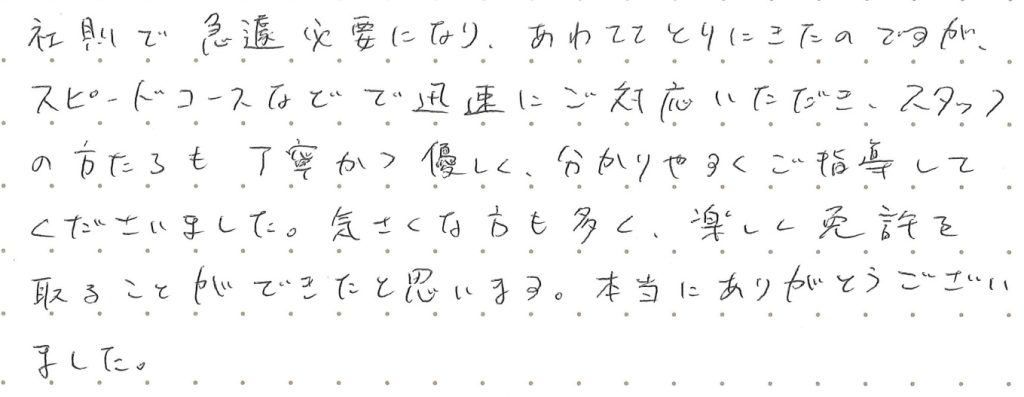 社則で急遽必要になり、あわててとりにきたのですが、
スピードコースなどで迅速にご対応いただき、スタッフ
の方たちも丁寧かつ優しく、分かりやすくご指導して
くださいました。気さくな方も多く、楽しく免許を
取ることができたと思います。本当にありがとうござい
ました。